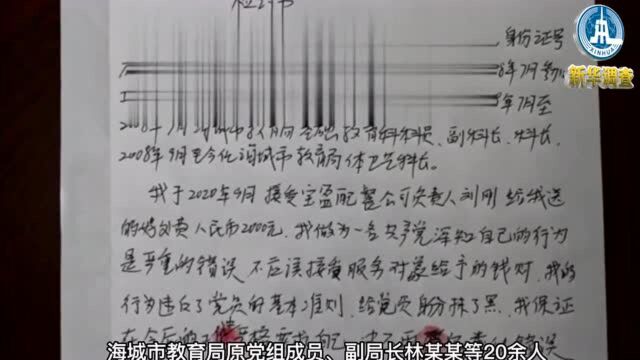 XINHUA
新华调查
检讨书
身份证号
年7月至
教育科科员、副科长、科长,
2008年9月至今任海城市教育局体卫艺科长。
我于2020年9月接受宝盈配餐公司负责人刘刚给我送
的好处费人民币2000元,我做为一名共产党深知自己的行为
是严重的错误,不应该接受服务对象给予的钱财,我的
行为违白了党员的基本准则,给党员身份抹了黑,我保证
海城市教育局原党组成员、副局长林某某等20余人